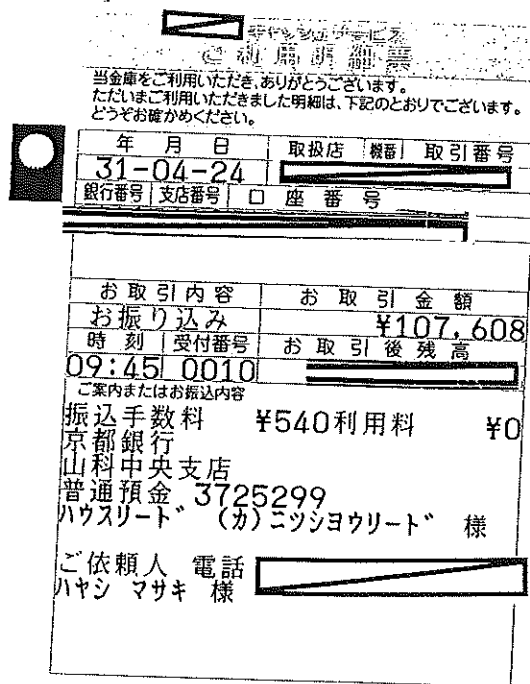 キャッシュサービス
ご利用明細票
当金庫をご利用いただき、ありがとうございます。
ただいまご利用いただきました明細は、下記のとおりでございます。
どうぞお確かめください。
年 月 日 取扱店 機番 取引番号
31-04-24
銀行番号 支店番号 口座番号
お取引内容 お取引金額
お振り込み ¥107,608
時刻 受付番号 お取引後残高
09:45 0010
ご案内またはお振込内容
振込手数料 ¥540利用料 ¥0
京都銀行
山科中央支店
普通預金 3725299
ハウスリード (カ)ニツシヨウリード 様
ご依頼人 電話
ハヤシ マサキ 様